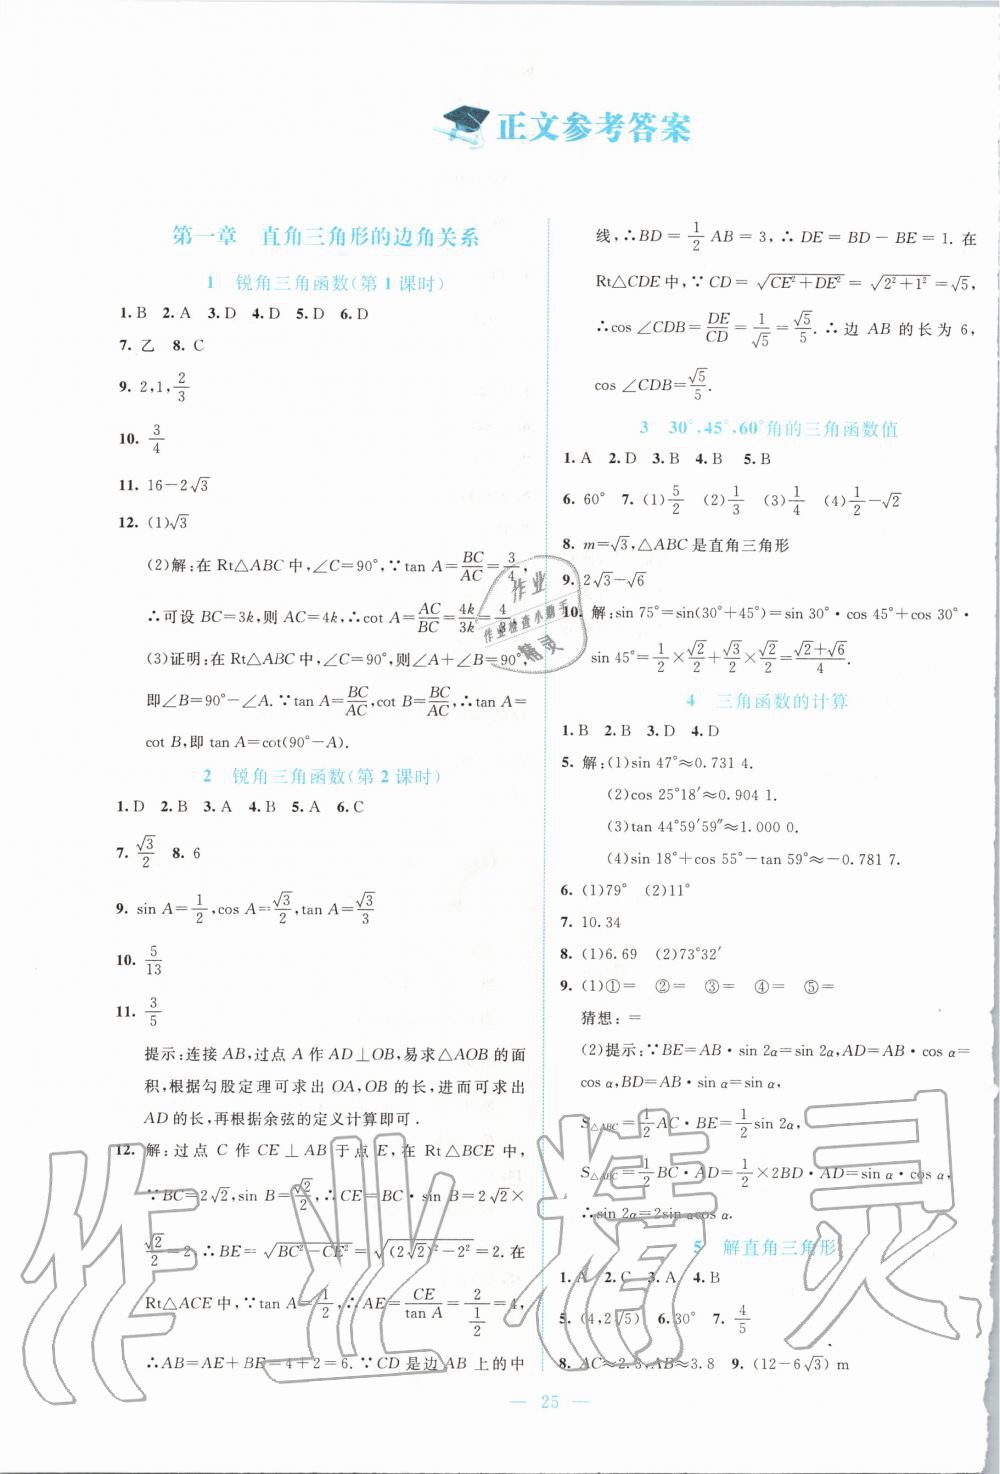 正文参考答案
第一章 直角三角形的边角关系
1 锐角三角函数(第1课时)
1.B 2.A 3.D 4.D 5.D 6.D
7. 乙 8. C
9. 2,1,2/3
10. 3/4
11. 16-2√3
12. (1)√3
(2)解:在 Rt△ABC 中,∠C=90°,∵tan A=BC/AC=3/4,
∴可设 BC=3k,则 AC=4k,∴cot A=AC/BC=4k/3k=4/3.
(3)证明:在 Rt△ABC 中,∠C=90°,则∠A+∠B=90°,
即∠B=90°-∠A.∵tan A=BC/AC,cot B=BC/AC,∴tan A=
cot B,即 tan A=cot(90°-A).
2 锐角三角函数(第2课时)
1.D 2.B 3.A 4.B 5.A 6.C
7. √3/2 8. 6
9. sin A=1/2,cos A=√3/2,tan A=√3/3
10. 5/13
11. 3/5
提示:连接 AB,过点 A 作 AD⊥OB,易求△AOB 的面
积,根据勾股定理可求出 OA,OB 的长,进而可求出
AD 的长,再根据余弦的定义计算即可.
12. 解:过点 C 作 CE⊥AB 于点 E,在 Rt△BCE 中,
∵BC=2√2,sin B=√2/2,∴CE=BC·sin B=2√2×
√2/2=2,∴BE=√(BC²-CE²)=√((2√2)²-2²)=2.在
Rt△ACE 中,∵tan A=1/2,∴AE=CE/tan A=2/(1/2)=4,
∴AB=AE+BE=4+2=6.∵CD 是边 AB 上的中
线,∴BD=1/2 AB=3,∴DE=BD-BE=1.在
Rt△CDE 中,∵CD=√(CE²+DE²)=√(2²+1²)=√5,
∴cos∠CDB=DE/CD=1/√5=√5/5.∴边 AB 的长为 6,
cos∠CDB=√5/5.
3 30°,45°,60°角的三角函数值
1.A 2.D 3.B 4.B 5.B
6. 60° 7. (1)5/2 (2)1/3 (3)1/4 (4)1/2-√2
8. m=√3,△ABC 是直角三角形
9. 2√3-√6
10. 解:sin 75°=sin(30°+45°)=sin 30°·cos 45°+cos 30°·
sin 45°=1/2×√2/2+√3/2×√2/2=(√2+√6)/4.
4 三角函数的计算
1.B 2.B 3.D 4.D
5. 解:(1)sin 47°≈0.731 4.
(2)cos 25°18′≈0.904 1.
(3)tan 44°59′59″≈1.000 0.
(4)sin 18°+cos 55°-tan 59°≈-0.781 7.
6. (1)79° (2)11°
7. 10.34
8. (1)6.69 (2)73°32′
9. (1)①= ②= ③= ④= ⑤=
猜想:=
(2)提示:∵BE=AB·sin 2α=sin 2α,AD=AB·cos α=
cos α,BD=AB·sin α=sin α,
S△ABC=1/2 AC·BE=1/2 sin 2α,
S△ABC=1/2 BC·AD=1/2×2BD·AD=sin α·cos α,
∴sin 2α=2sin αcos α.
5 解直角三角形
1.A 2.C 3.A 4.B
5. (4,2√5) 6.30° 7. 4/5
8. AC≈2.3,AB≈3.8 9. (12-6√3) m
— 25 —
作业
作业检查小助手
精灵
作业精灵